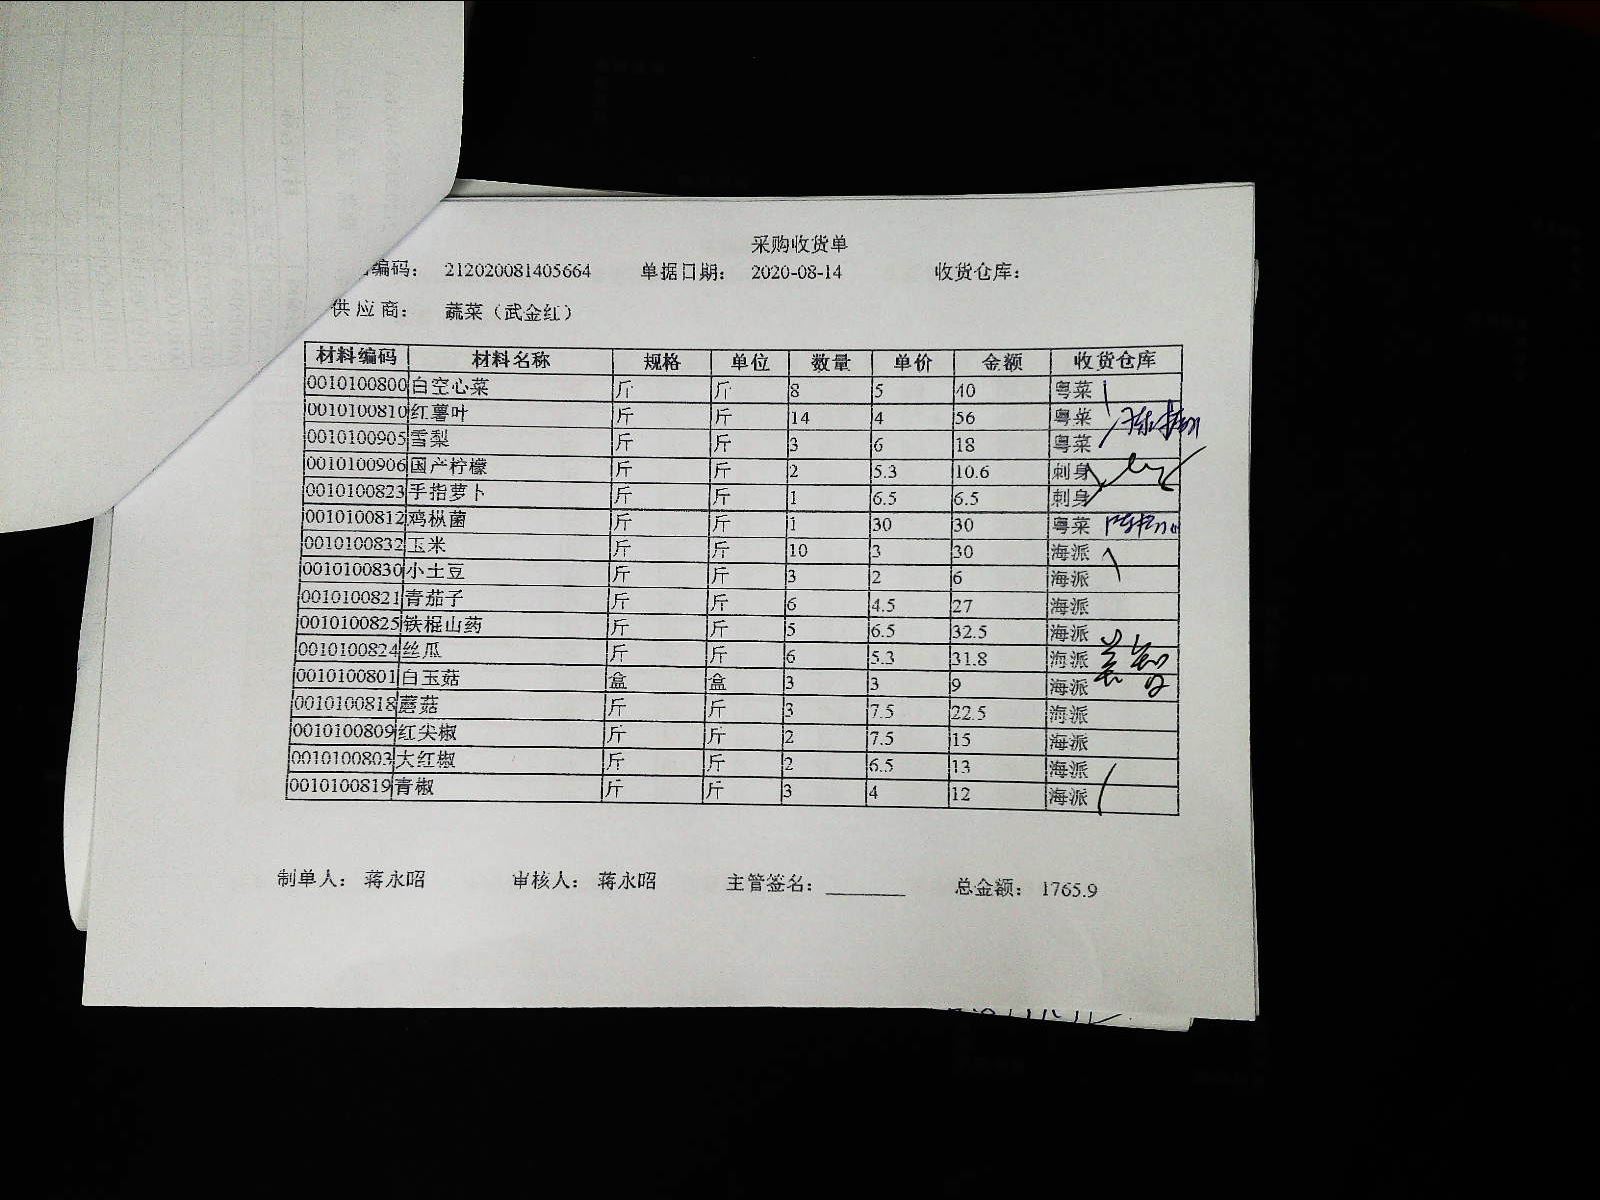 采购收货单
编码： 212020081405664 单据日期： 2020-08-14 收货仓库：
供应商： 蔬菜（武金红）
材料编码 材料名称 规格 单位 数量 单价 金额 收货仓库
0010100800 白空心菜 斤 斤 8 5 40 粤菜
0010100810 红薯叶 斤 斤 14 4 56 粤菜
0010100905 雪梨 斤 斤 3 6 18 粤菜
0010100906 国产柠檬 斤 斤 2 5.3 10.6 刺身
0010100823 手指萝卜 斤 斤 1 6.5 6.5 刺身
0010100812 鸡枞菌 斤 斤 1 30 30 粤菜
0010100832 玉米 斤 斤 10 3 30 海派
0010100830 小土豆 斤 斤 3 2 6 海派
0010100821 青茄子 斤 斤 6 4.5 27 海派
0010100825 铁棍山药 斤 斤 5 6.5 32.5 海派
0010100824 丝瓜 斤 斤 6 5.3 31.8 海派
0010100801 白玉菇 盒 盒 3 3 9 海派
0010100818 蘑菇 斤 斤 3 7.5 22.5 海派
0010100809 红尖椒 斤 斤 2 7.5 15 海派
0010100803 大红椒 斤 斤 2 6.5 13 海派
0010100819 青椒 斤 斤 3 4 12 海派
制单人： 蒋永昭 审核人： 蒋永昭 主管签名： 总金额： 1765.9